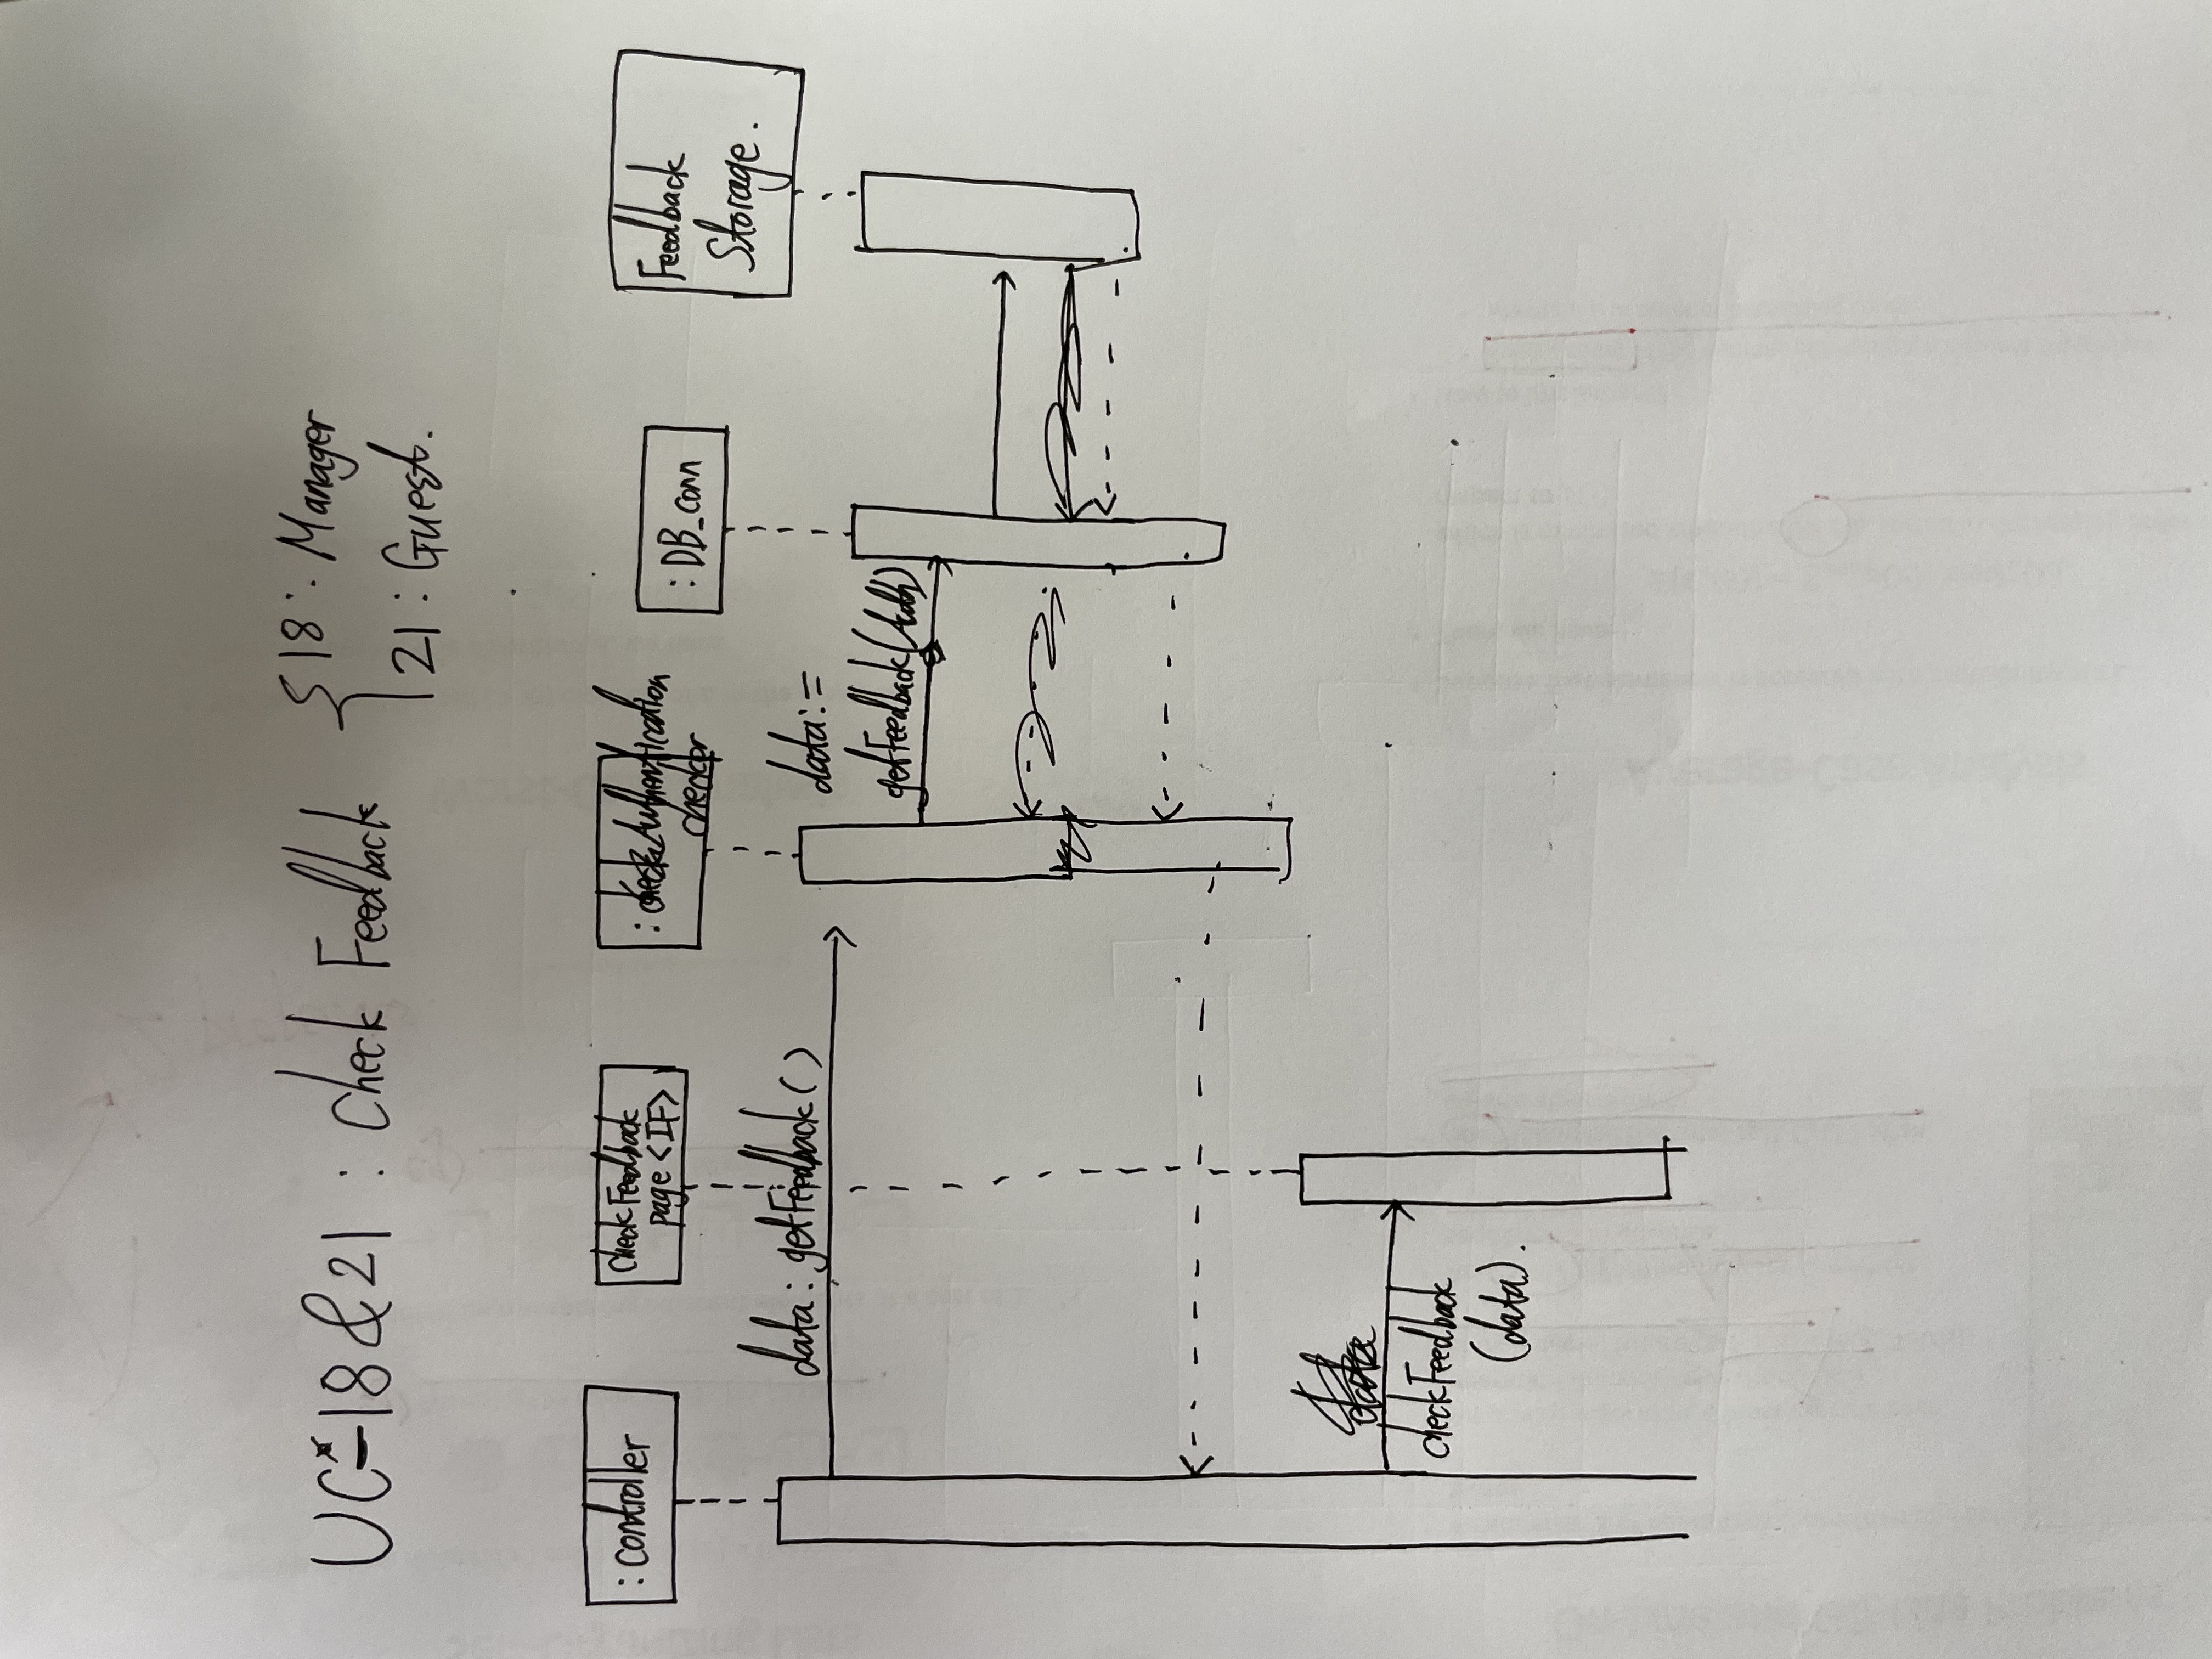 UC-18 & 21 : Check Feedback
18 : Manager
21 : Guest.
: controller
checkFeedback
page <IF>
: Authentication
checker
: DB_conn
Feedback
Storage.
data : getFeedback ( )
data :=
getFeedback (Auth)
checkFeedback
(data).